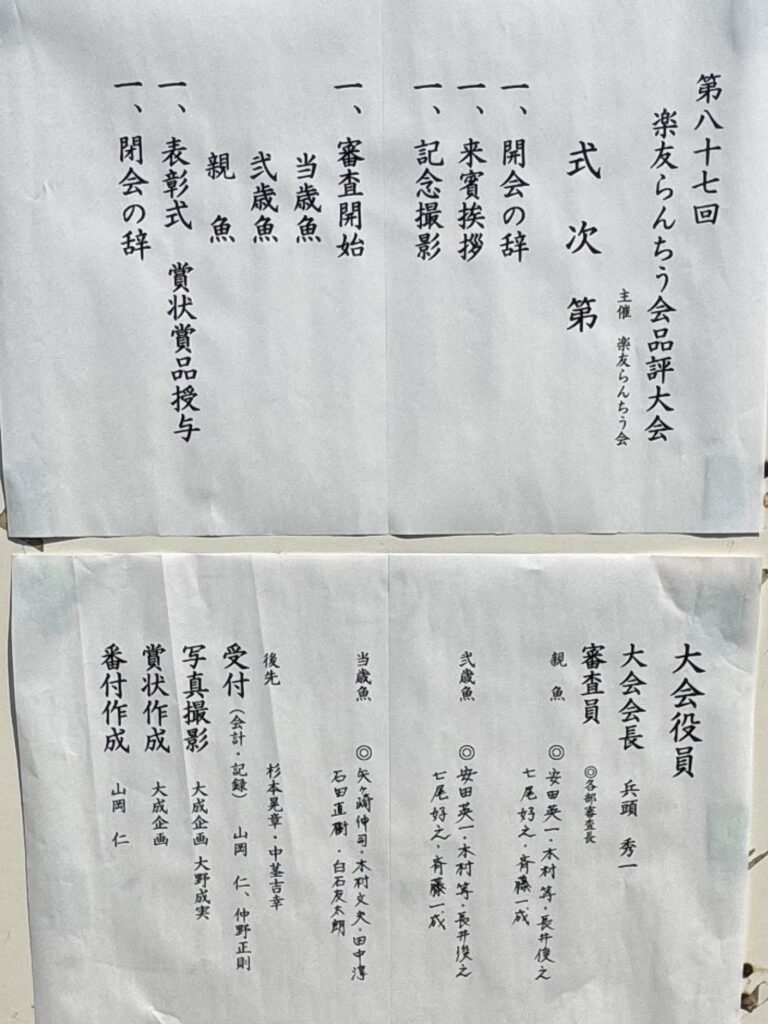 第八十七回
楽友らんちう会品評大会
主催 楽友らんちう会
式次第
一、開会の辞
一、来賓挨拶
一、記念撮影
一、審査開始
当歳魚
弐歳魚
親魚
一、表彰式 賞状賞品授与
一、閉会の辞
大会役員
大会会長 兵頭 秀一
審査員 ◎各部審査長
親魚 ◎安田英一・木村等・長井俊之
七尾好之・斉藤一成
弐歳魚 ◎安田英一・木村等・長井俊之
七尾好之・斉藤一成
当歳魚 ◎矢ヶ崎伸司・木村文夫・田中淳
石田直樹・白石友太朗
後先 杉本晃章・中茎吉幸
受付(会計・記録) 山岡 仁、仲野正則
写真撮影 大成企画 大野成実
賞状作成 大成企画
番付作成 山岡 仁